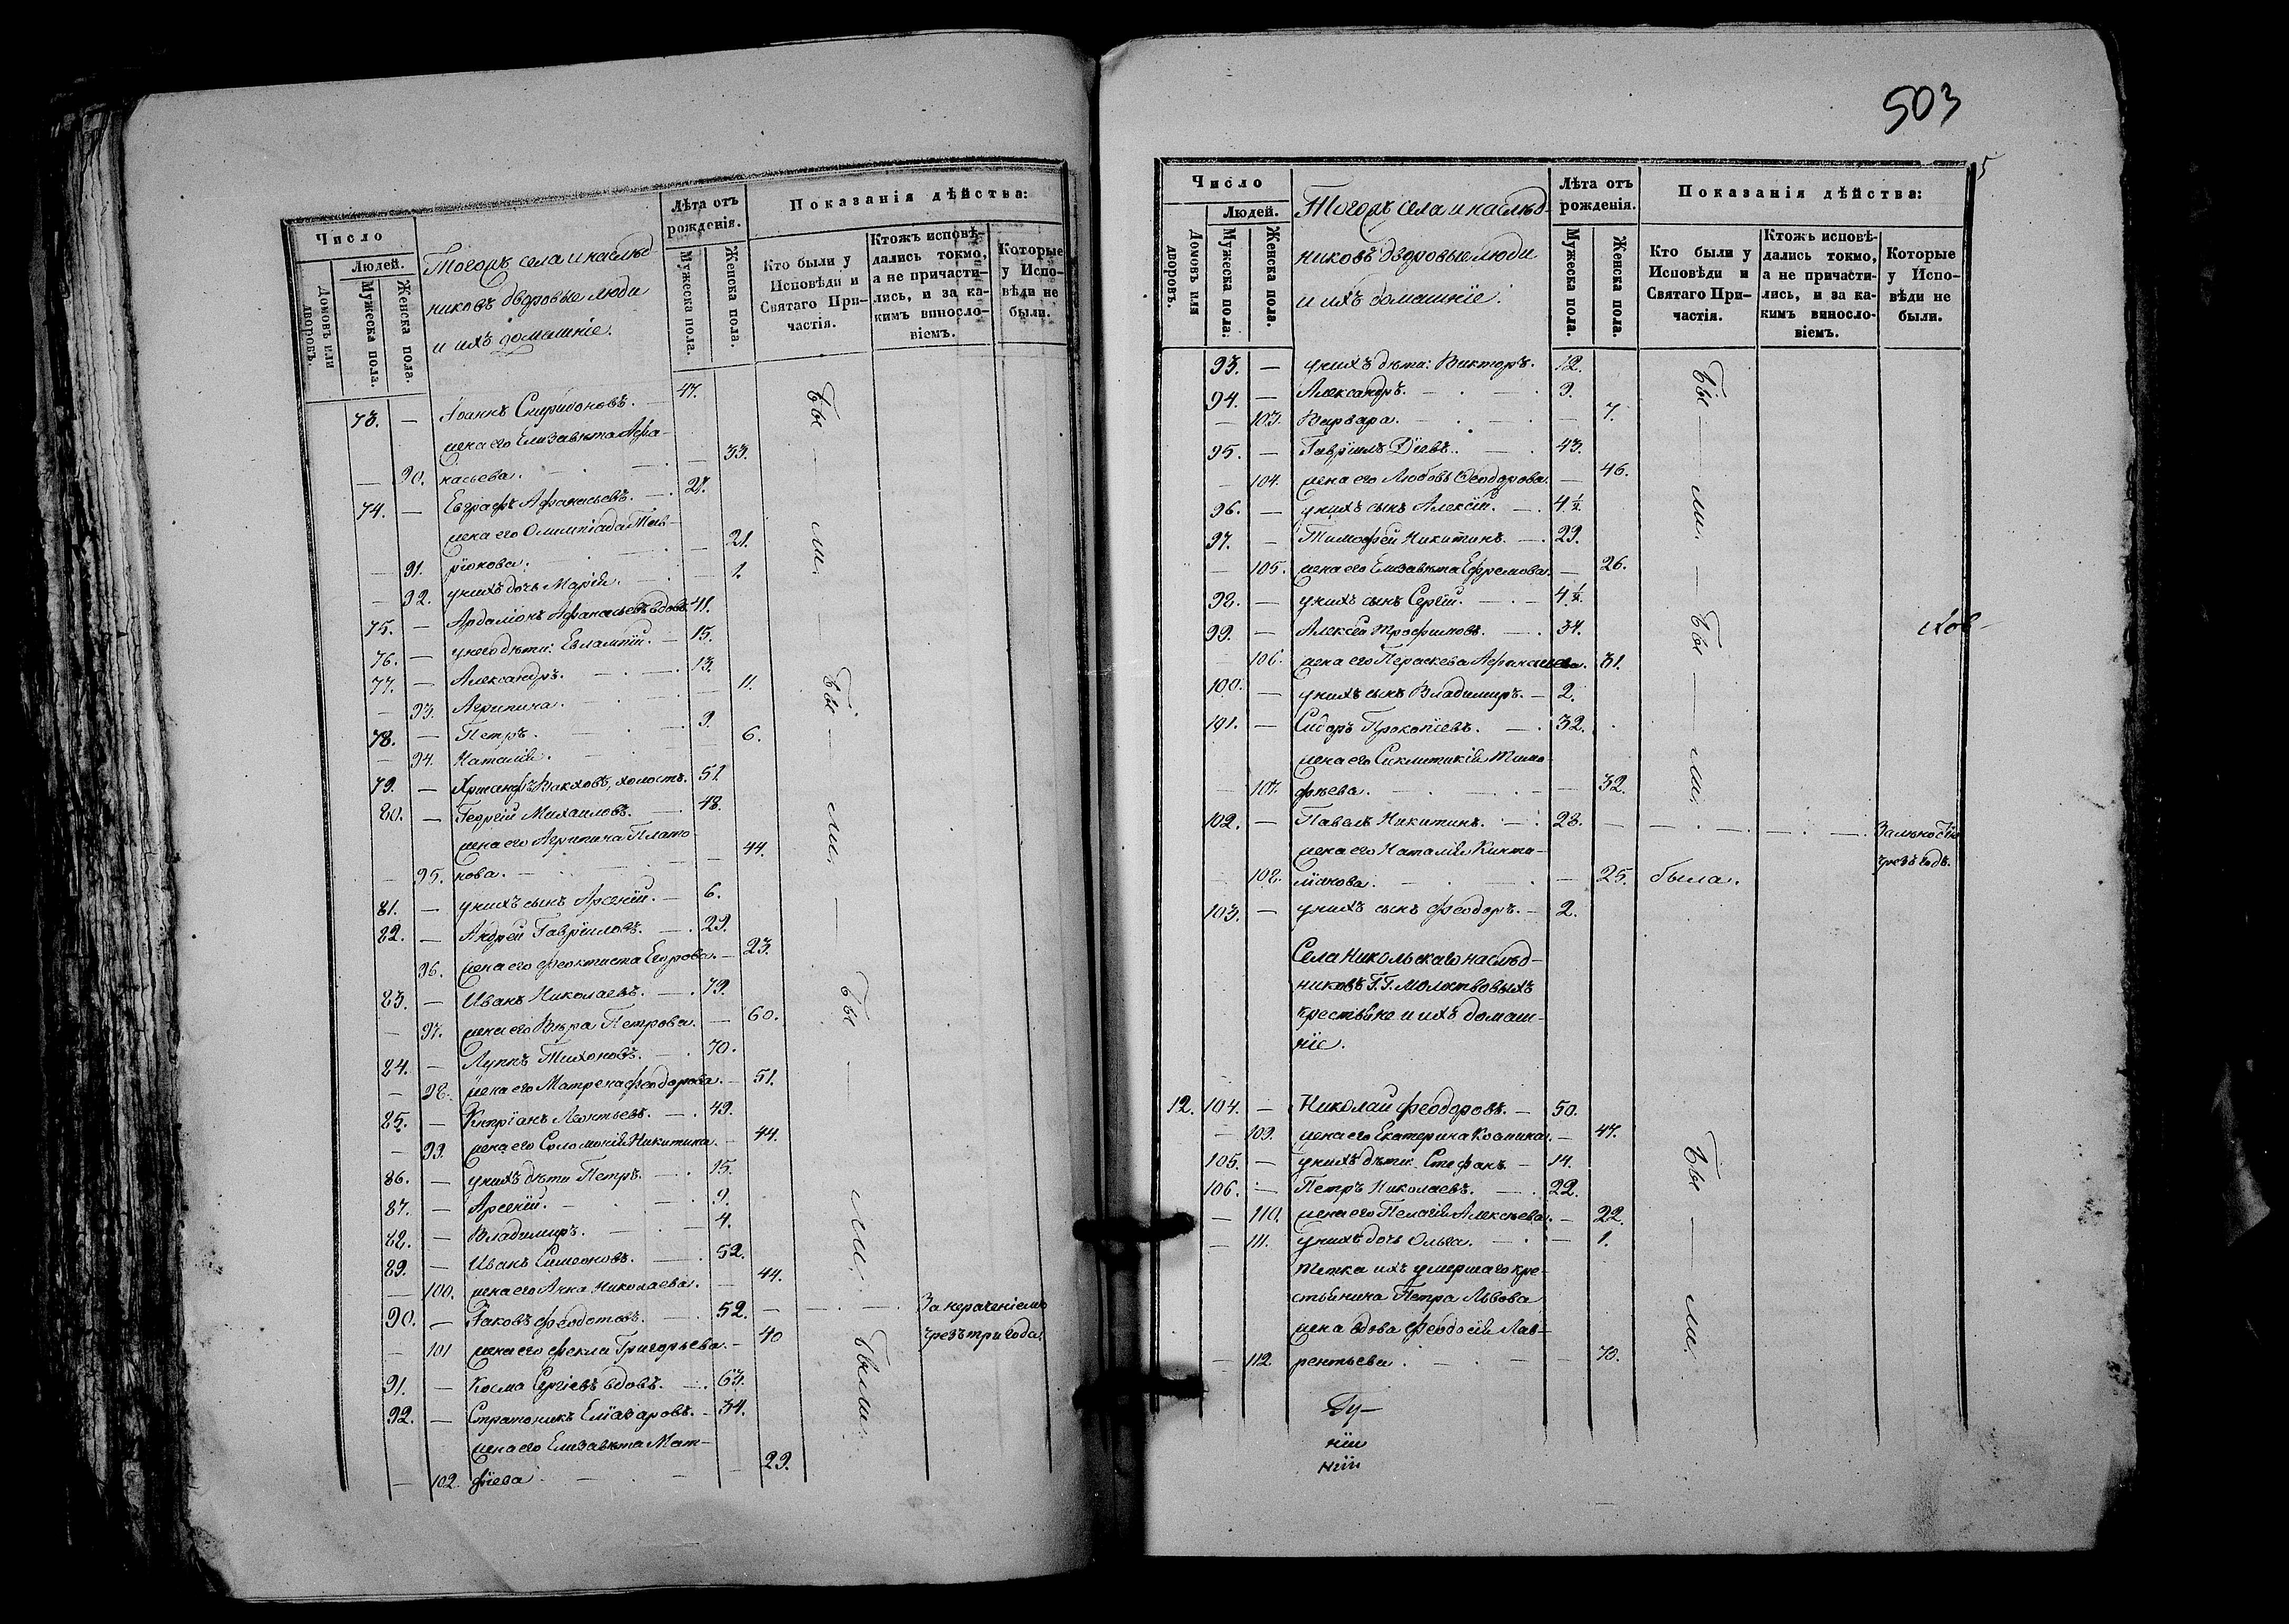 Число
Людей.
Домовъ или дворовъ.
Мужеска пола.
Женска пола.
Тогожъ села и наслѣд
никовъ дворовые люди
и ихъ домашніе.
Лѣта отъ рожденія.
Мужеска пола.
Женска пола.
Показанія дѣйства:
Кто были у Исповѣди и Святаго При-частія.
Ктожъ исповѣ-дались токмо, а не причасти-лись, и за ка-кимъ винosло-віемъ.
Которые у Испо-вѣди не были.
73. — Іоаннъ Спиридоновъ. — 47. Бы — ли.
жена его Елизавета Афа-
— 90. насьева. — 33.
74. — Евграфъ Афанасьевъ. — 27.
жена его Олимпіада Тав-
— 91.ріонова. — 21.
— 92. у нихъ дочь Марія. — 1.
75. — Ардаліонъ Афанасьевъ вдовъ. 41.
76. — у него дѣти: Евлампій. — 15.
77. — Александръ. — 13. Бы — ли.
— 93. Агрипина. — 11.
78. — Петръ. — 9.
— 94. Наталія. 6.
79. — Хрисанфъ Вакховъ, холостъ. 51
80. — Георгій Михаиловъ. — 48.
жена его Агрипина Плато
— 95. нова. — 44.
81. — у нихъ сынъ Арсеній. — 6.
82. — Андрей Гавріиловъ. — 29.
96. жена его Феоктиста Егорова. — 23.
83. — Иванъ Николаевъ. — 79. Бы — ли.
— 97. жена его Вѣра Петрова. — 60.
84. — Луппъ Тихоновъ. — 70.
— 98. жена его Матрена Феодорова. — 51.
85. — Кипріанъ Леонтьевъ. — 49.
— 99. жена его Соломонія Никитина. — 44.
86. — у нихъ дѣти Петръ. — 15.
87. — Арсеній. — 9.
88. — Владимиръ. — 4.
89. — Иванъ Симеоновъ. — 52.
— 100. жена его Анна Николаева. — 44.
90. — Іаковъ Феодотовъ. — 52. — За нераченіемъ
— 101 жена его Фекла Григорьева. — 40 чрезъ три года.
91. — Косма Сергіевъ вдовъ. — 63. Были.
92. — Стратоникъ Еліазаровъ. — 34.
жена его Елизавета Мат-
— 102. фіева — 29.
503
5
Число
Людей.
Домовъ или дворовъ.
Мужеска пола.
Женска пола.
Тогожъ села и наслѣд-
никовъ дворовые люди
и ихъ домашніе.
Лѣта отъ рожденія.
Мужеска пола.
Женска пола.
Показанія дѣйства:
Кто были у Исповѣди и Святаго При-частія.
Ктожъ исповѣ-дались токмо, а не причасти-лись, и за ка-кимъ виносло-віемъ.
Которые у Испо-вѣди не были.
93. — у нихъ дѣти: Викторъ. 12. Бы — ли.
94. — Александръ. — 9.
— 103. Варвара. — 7.
95. — Гавріилъ Діевъ. — 43.
— 104. жена его Любовь Феодорова. — 46.
96. — у нихъ сынъ Алексій. — 4½
97. — Тимофей Никитинъ. — 29.
— 105. жена его Елизавета Ефремова. — 26.
98. — у нихъ сынъ Сергій. — 4½ Бы — ли.
99. — Алексей Трофимовъ. — 34.
— 106. жена его Параскева Афанасьева. 31.
100. — у нихъ сынъ Владимиръ. — 2.
101. — Сидоръ Прокопіевъ. — 32.
жена его Синклитикія Тимо
— 107. фѣева. — 32.
102. — Павелъ Никитинъ. — 28. — За лѣностію
жена его Наталія Кинти- чрезъ годъ.
— 108. ліанова. — 25. была.
103. — у нихъ сынъ Феодоръ. — 2.
Села Никольскаго наслѣд-
никовъ Г.Г. Молоствовыхъ
крестьяне и ихъ домаш-
ніе.
12. 104. — Николай Феодоровъ. — 50.
— 109. жена его Екатерина Космина. — 47. Бы — ли.
105. — у нихъ дѣти Стефанъ — 14.
106. — Петръ Николаевъ. — 22.
— 110. жена его Пелагія Алексѣева. — 22.
— 111. у нихъ дочь Ольга. — 1.
Тетка ихъ умершаго кре-
стьянина Петра Львова
жена вдова Феодосія Лав-
— 112. рентьева. — 70.